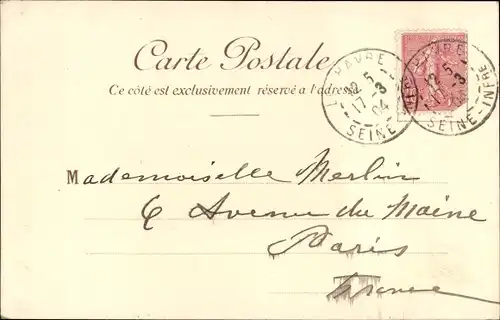 Carte Postale
Ce côté est exclusivement réservé a l'adresse
LE HAVRE
12 5
17 - 3
04
SEINE-INFRE
HAVRE
12 5
3
SEINE-INFRE
Mademoiselle Merlin
6 Avenue du Maine
Paris
France